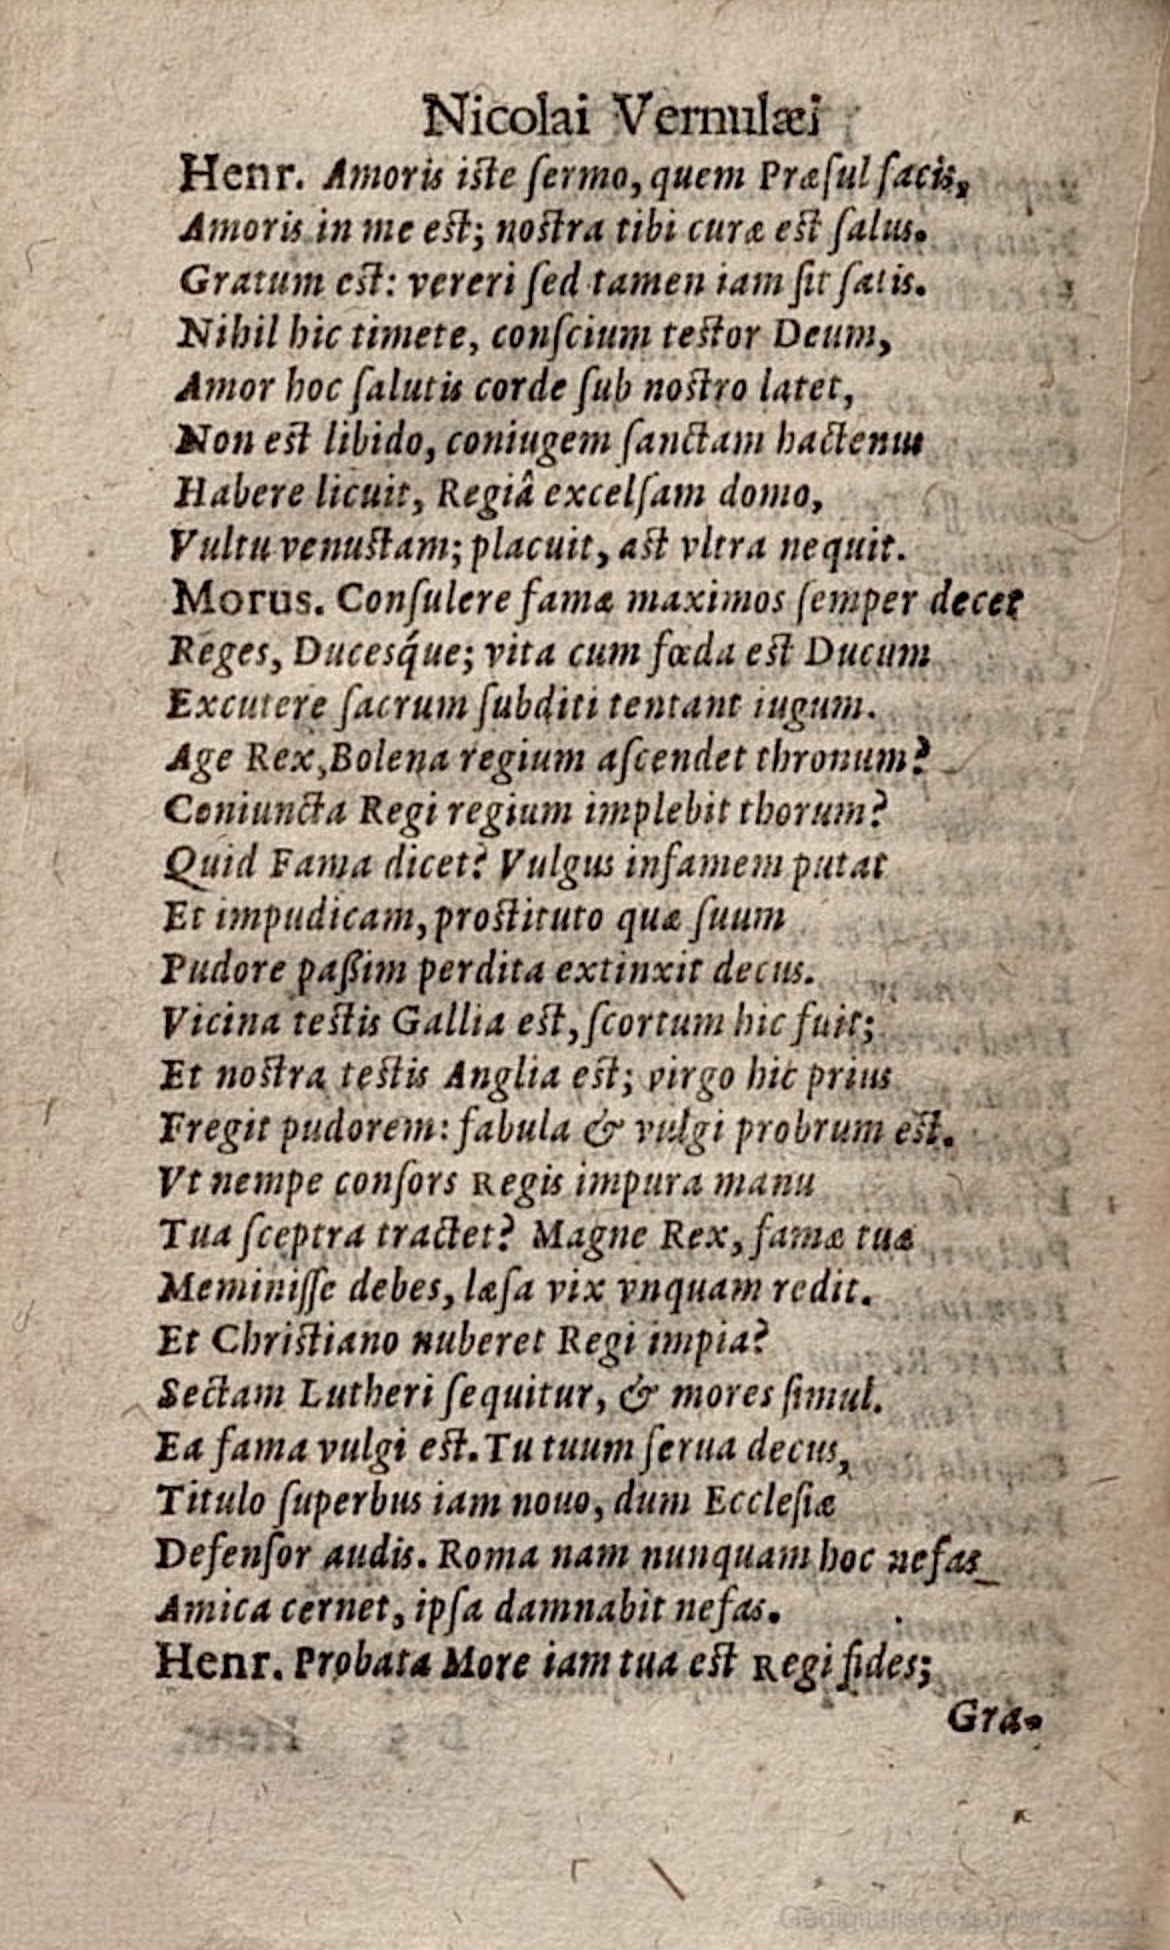 Nicolai Vernulæi
Henr. Amoris iste ſermo, quem Præſul facis,
Amoris in me est; nostra tibi curæ est ſalus.
Gratum est: vereri ſed tamen iam ſit ſatis.
Nihil hic timete, conſcium testor Deum,
Amor hoc ſalutis corde ſub nostro latet,
Non est libido, coniugem ſanctam hactenus
Habere licuit, Regiâ excelſam domo,
Vultu venustam; placuit, ast vltra nequit.
Morus. Conſulere famæ maximos ſemper decet
Reges, Ducesq́ue; vita cum fœda est Ducum
Excutere ſacrum ſubditi tentant iugum.
Age Rex, Bolena regium aſcendet thronum?
Coniuncta Regi regium implebit thorum?
Quid Fama dicet? Vulgus infamem putat
Et impudicam, prostituto quæ ſuum
Pudore paßim perdita extinxit decus.
Vicina testis Gallia est, ſcortum hic fuit;
Et nostra testis Anglia est; virgo hic prius
Fregit pudorem: fabula & vulgi probrum est.
Vt nempe conſors Regis impura manu
Tua ſceptra tractet? Magne Rex, famæ tuæ
Meminiſſe debes, læſa vix vnquam redit.
Et Christiano nuberet Regi impia?
Sectam Lutheri ſequitur, & mores ſimul.
Ea fama vulgi est. Tu tuum ſerua decus,
Titulo ſuperbus iam nouo, dum Eccleſiæ
Defenſor audis. Roma nam nunquam hoc nefas
Amica cernet, ipſa damnabit nefas.
Henr. Probata More iam tua est Regi fides;
Gra-